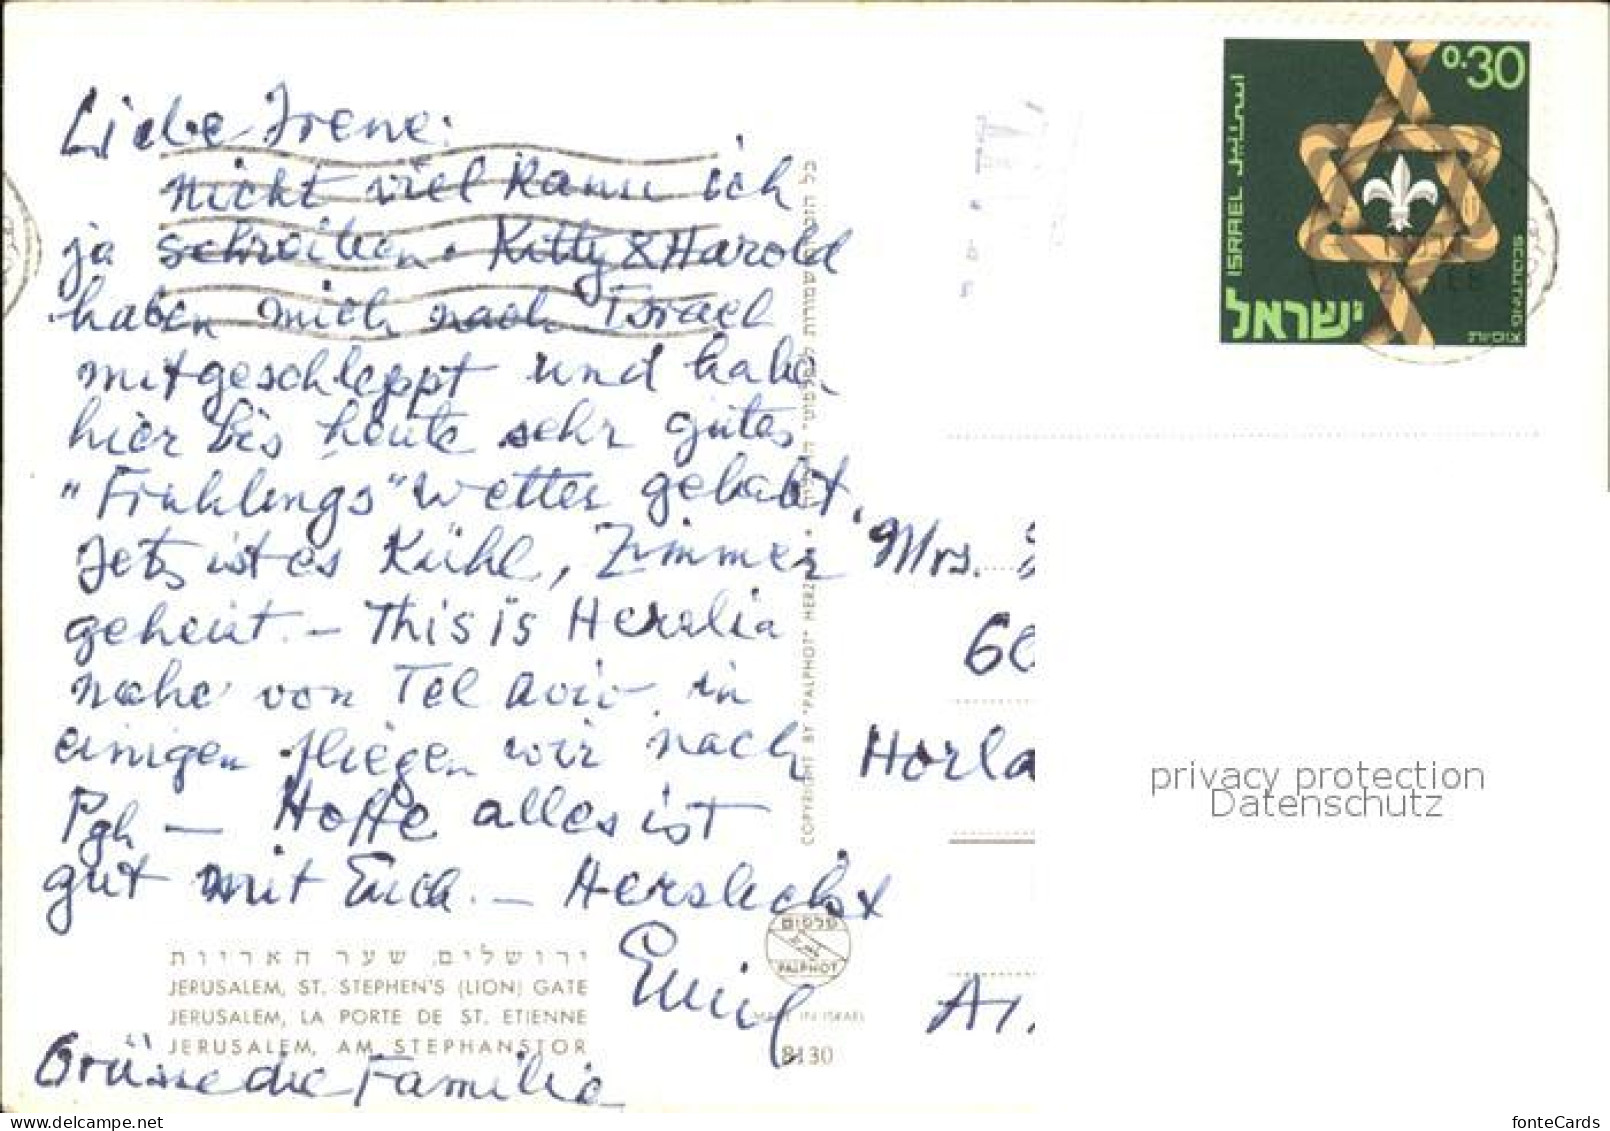 Liebe Irene:
nicht viel kann ich
ja schreiben. Kitty & Harold
haben mich nach Israel
mitgeschleppt und haben
hier bis heute sehr gutes
"Frühlings" wetter gehabt.
Jetz ist es Kühl, Zimmer
geheizt. – This is Herzlia
nahe von Tel aviv, in
einigen fliegen wir nach
Pgh – Hoffe alles ist
gut mit Euch. – Herzlichst
Emil
Grüsse die Familie
ירושלים, שער האריות
JERUSALEM, ST. STEPHEN'S (LION) GATE
JERUSALEM, LA PORTE DE ST. ETIENNE
JERUSALEM, AM STEPHANSTOR
פלפוט
PALPHOT
MADE IN ISRAEL
8130
COPYRIGHT BY "PALPHOT" HERZ
כל הזכויות שמורות
0.30
اسرائيل
ISRAEL
ישראל
Mrs.
60
Horla
Ar.
privacy protection
Datenschutz
fonteCards